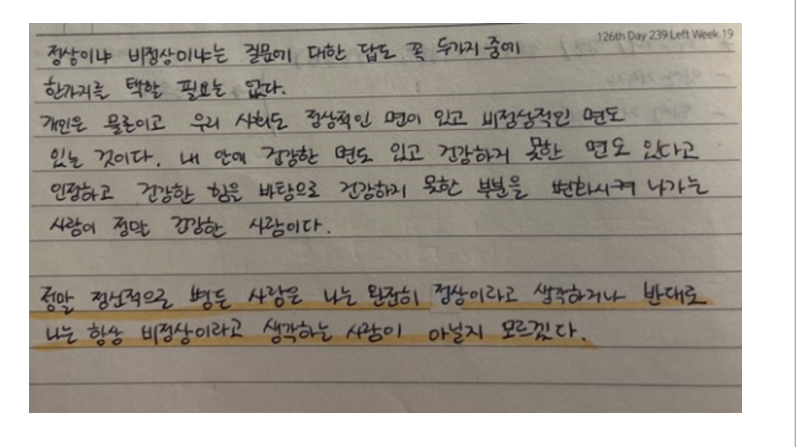 126th Day 239 Left Week 19
정상이냐 비정상이냐는 질문에 대한 답도 꼭 두가지 중에
한가지를 택할 필요는 없다.
개인은 물론이고 우리 사회도 정상적인 면이 있고 비정상적인 면도
있는 것이다. 내 안에 건강한 면도 있고 건강하지 못한 면도 있다고
인정하고 건강한 힘을 바탕으로 건강하지 못한 부분을 변화시켜 나가는
사람이 정말 건강한 사람이다.
정말 정신적으로 병든 사람은 나는 완전히 정상이라고 생각하거나 반대로
나는 항상 비정상이라고 생각하는 사람이 아닐지 모르겠다.